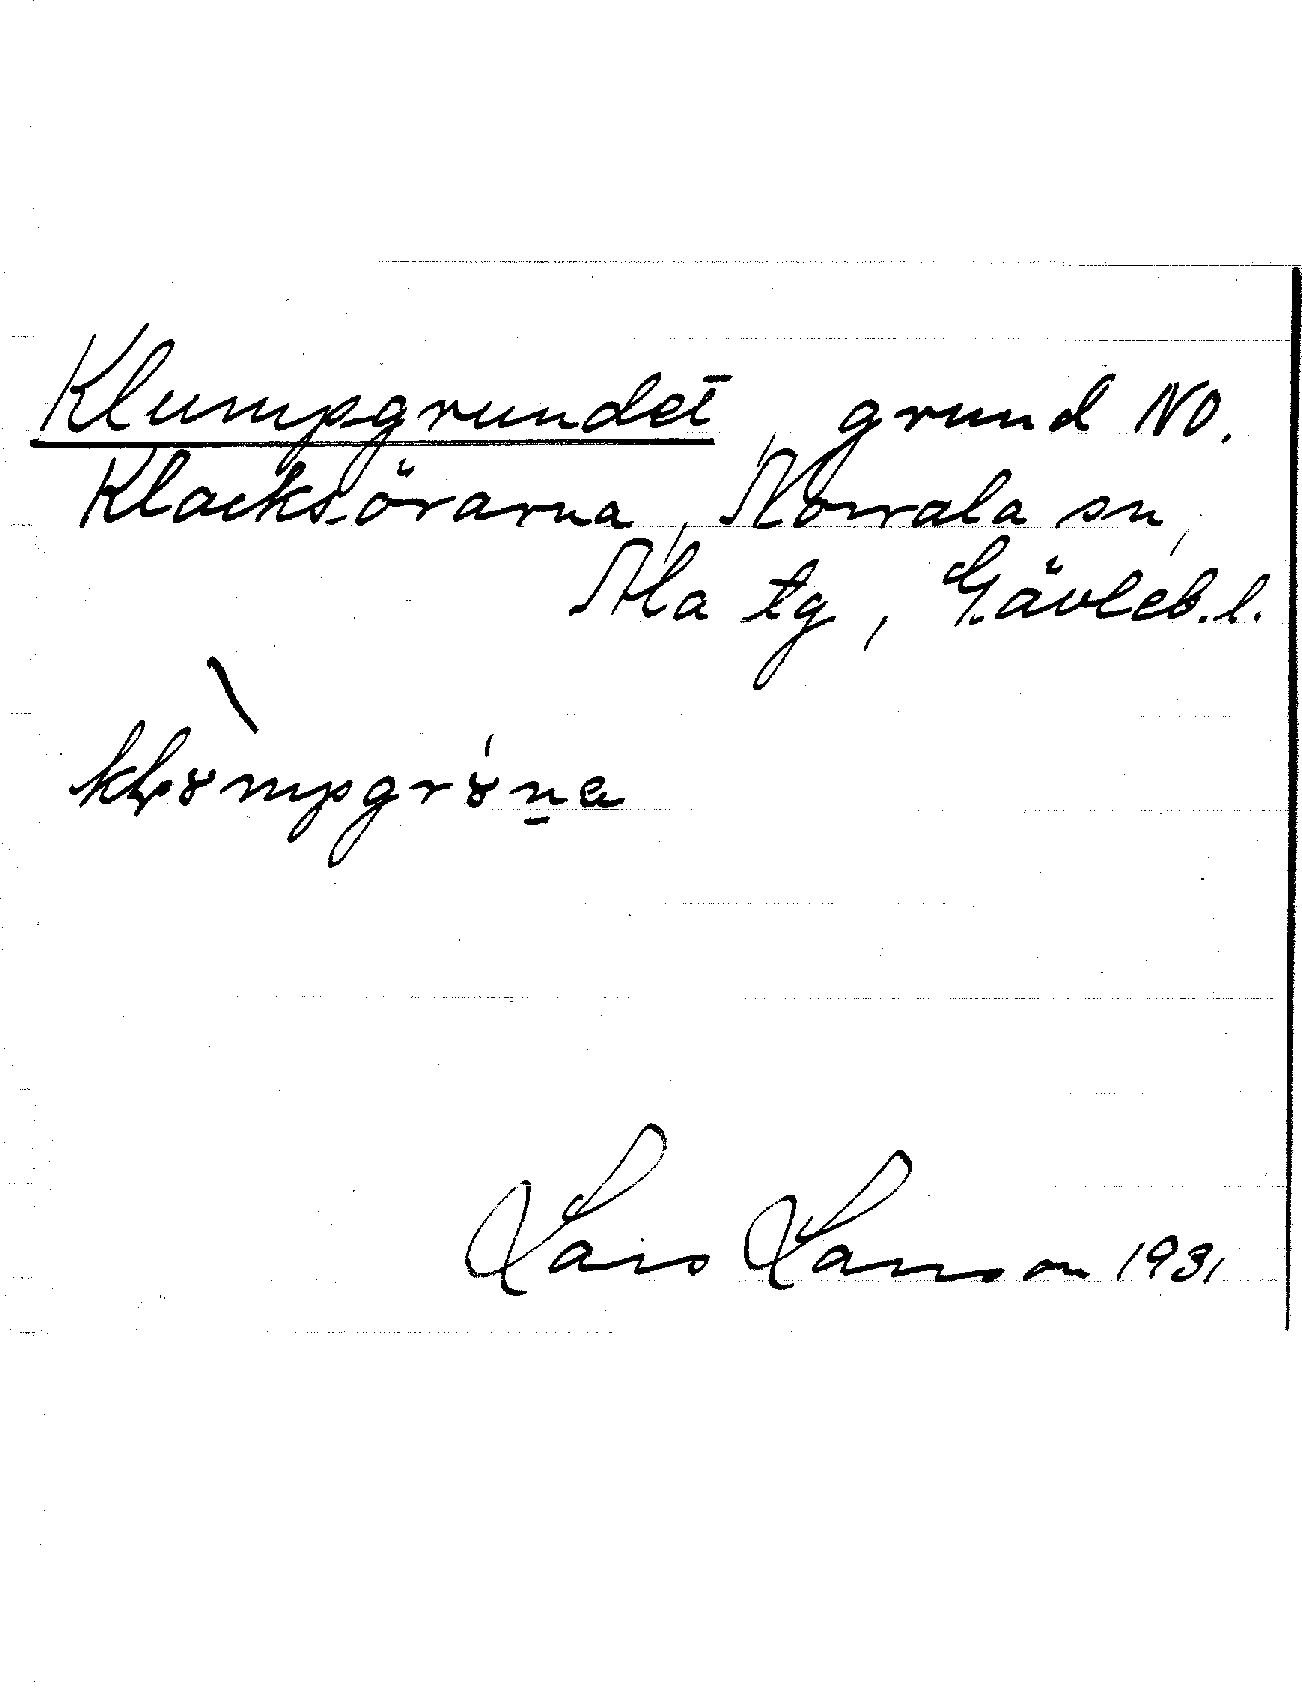 Klumpgrundet, grund NO.
Klacksörarna, Norrala sn,
Ala tg, Gävleb.l.
Lars Larsson 1931